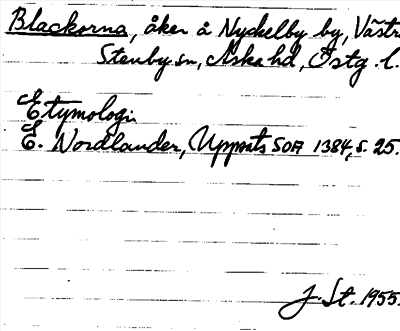 Blackorna, åker å Nyckelby by, Västr
Stenby sn, Aska hd, Östg. l.
Etymologi
E. Nordlander, Uppsats SOA 1384, s. 25.
J. St. 1955.